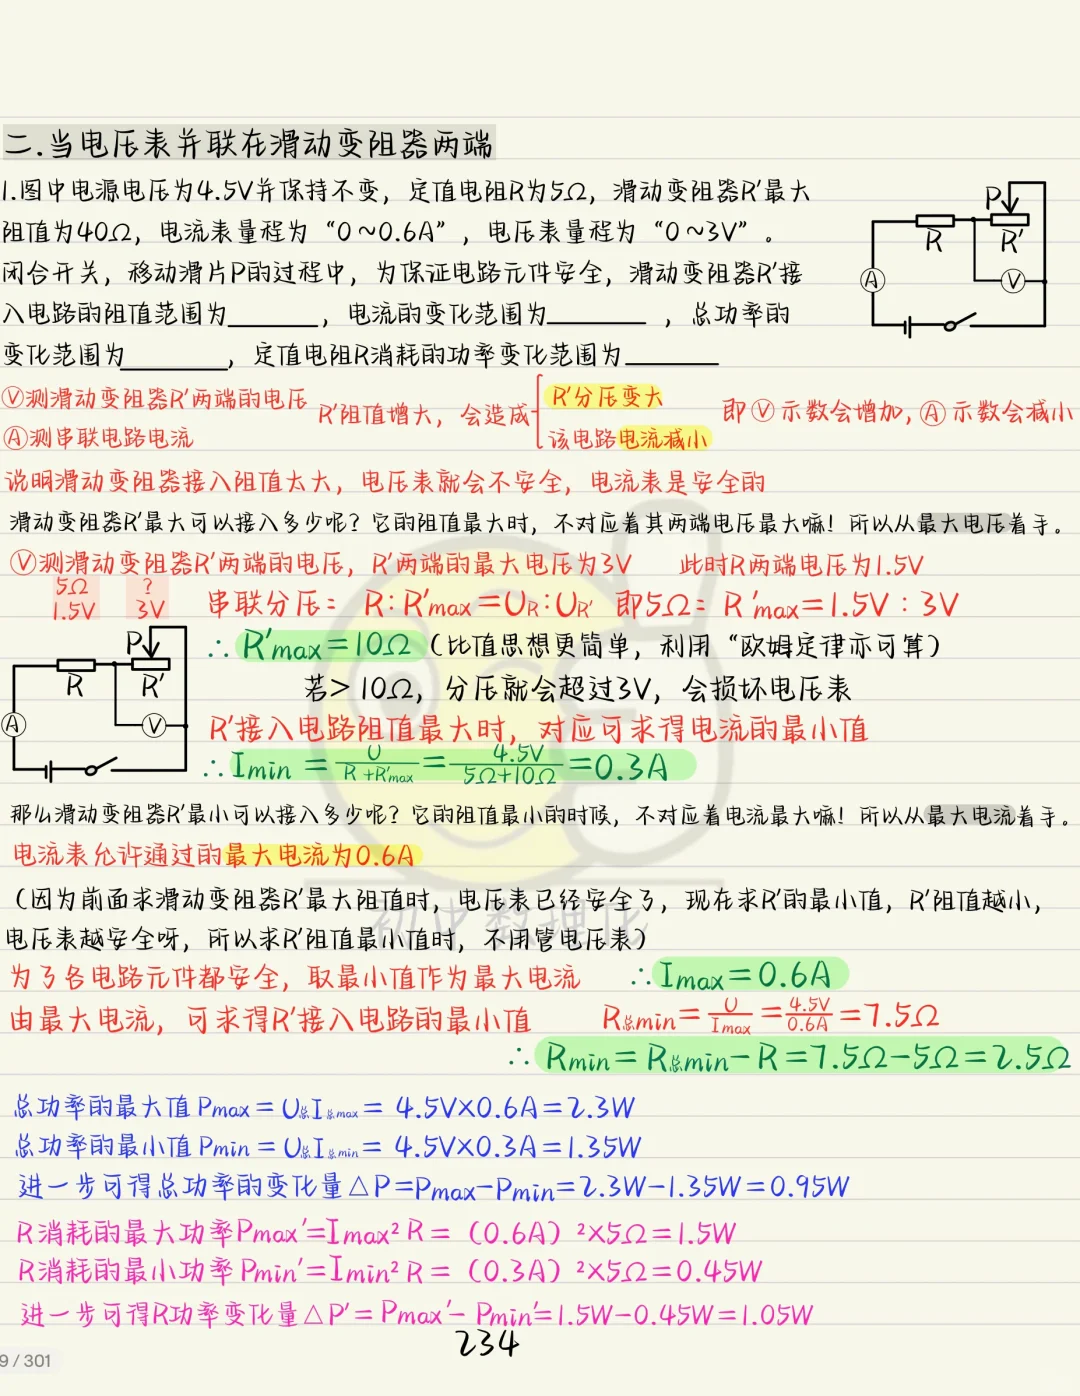 二.当电压表并联在滑动变阻器两端
1.图中电源电压为4.5V并保持不变，定值电阻R为5Ω，滑动变阻器R′最大
阻值为40Ω，电流表量程为“0～0.6A”，电压表量程为“0～3V”。
闭合开关，移动滑片P的过程中，为保证电路元件安全，滑动变阻器R′接
入电路的阻值范围为______，电流的变化范围为______，总功率的
变化范围为______，定值电阻R消耗的功率变化范围为______
P
R
R′
A
V
Ⓥ测滑动变阻器R′两端的电压
Ⓐ测串联电路电流
R′阻值增大，会造成
R′分压变大
该电路电流减小
即Ⓥ示数会增加，Ⓐ示数会减小
说明滑动变阻器接入阻值太大，电压表就会不安全，电流表是安全的
滑动变阻器R′最大可以接入多少呢？它的阻值最大时，不对应着其两端电压最大嘛！所以从最大电压着手。
Ⓥ测滑动变阻器R′两端的电压，R′两端的最大电压为3V 此时R两端电压为1.5V
5Ω ?
1.5V 3V
串联分压：R:R′max=UR:UR′ 即5Ω：R′max=1.5V：3V
P
R
R′
A
V
∴R′max=10Ω（比值思想更简单，利用“欧姆定律亦可算）
若>10Ω，分压就会超过3V，会损坏电压表
R′接入电路阻值最大时，对应可求得电流的最小值
∴Imin=U/(R+R′max)=4.5V/(5Ω+10Ω)=0.3A
那么滑动变阻器R′最小可以接入多少呢？它的阻值最小的时候，不对应着电流最大嘛！所以从最大电流着手。
电流表允许通过的最大电流为0.6A
（因为前面求滑动变阻器R′最大阻值时，电压表已经安全了，现在求R′的最小值，R′阻值越小，
电压表越安全呀，所以求R′阻值最小值时，不用管电压表）
初中数理化
为了各电路元件都安全，取最小值作为最大电流 ∴Imax=0.6A
由最大电流，可求得R′接入电路的最小值 R总min=U/Imax=4.5V/0.6A=7.5Ω
∴Rmin=R总min-R=7.5Ω-5Ω=2.5Ω
总功率的最大值Pmax=U总I总max=4.5V×0.6A=2.3W
总功率的最小值Pmin=U总I总min=4.5V×0.3A=1.35W
进一步可得总功率的变化量△P=Pmax-Pmin=2.3W-1.35W=0.95W
R消耗的最大功率Pmax′=Imax²R=（0.6A）²×5Ω=1.5W
R消耗的最小功率Pmin′=Imin²R=（0.3A）²×5Ω=0.45W
进一步可得R功率变化量△P′=Pmax′-Pmin′=1.5W-0.45W=1.05W
234
9/301